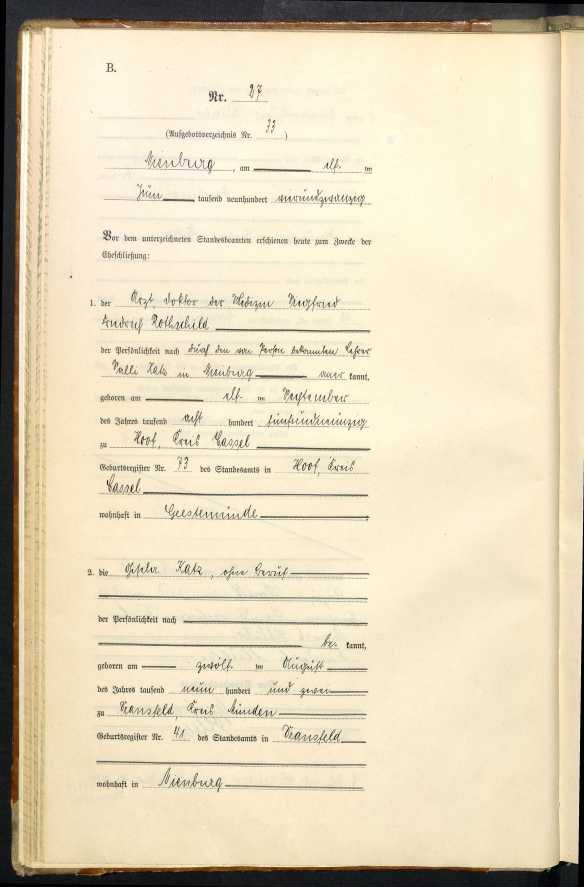 B.
Nr. 27
(Aufgebotsverzeichnis Nr. 33)
Nienburg, am elf ten
Juni tausend neunhundert vierundzwanzig
Vor dem unterzeichneten Standesbeamten erschienen heute zum Zwecke der
Eheschließung:
1. der Arzt, Doktor der Medizin Siegfried
Friedrich Rothschild
der Persönlichkeit nach durch den von Person bekannten Lehrer
Katz in Nienburg aner kannt,
geboren am elf ten September
des Jahres tausend acht hundert fünfundneunzig
zu Hoof, Kreis Cassel
Geburtsregister Nr. 73 des Standesamts in Hoof, Kreis
Cassel
wohnhaft in Geestemünde,
2. die Gisela Katz, ohne Beruf
der Persönlichkeit nach
be kannt,
geboren am zwölf ten August
des Jahres tausend neun hundert und zwei
zu Dransfeld, Kreis Münden
Geburtsregister Nr. 41 des Standesamts in Dransfeld
wohnhaft in Nienburg